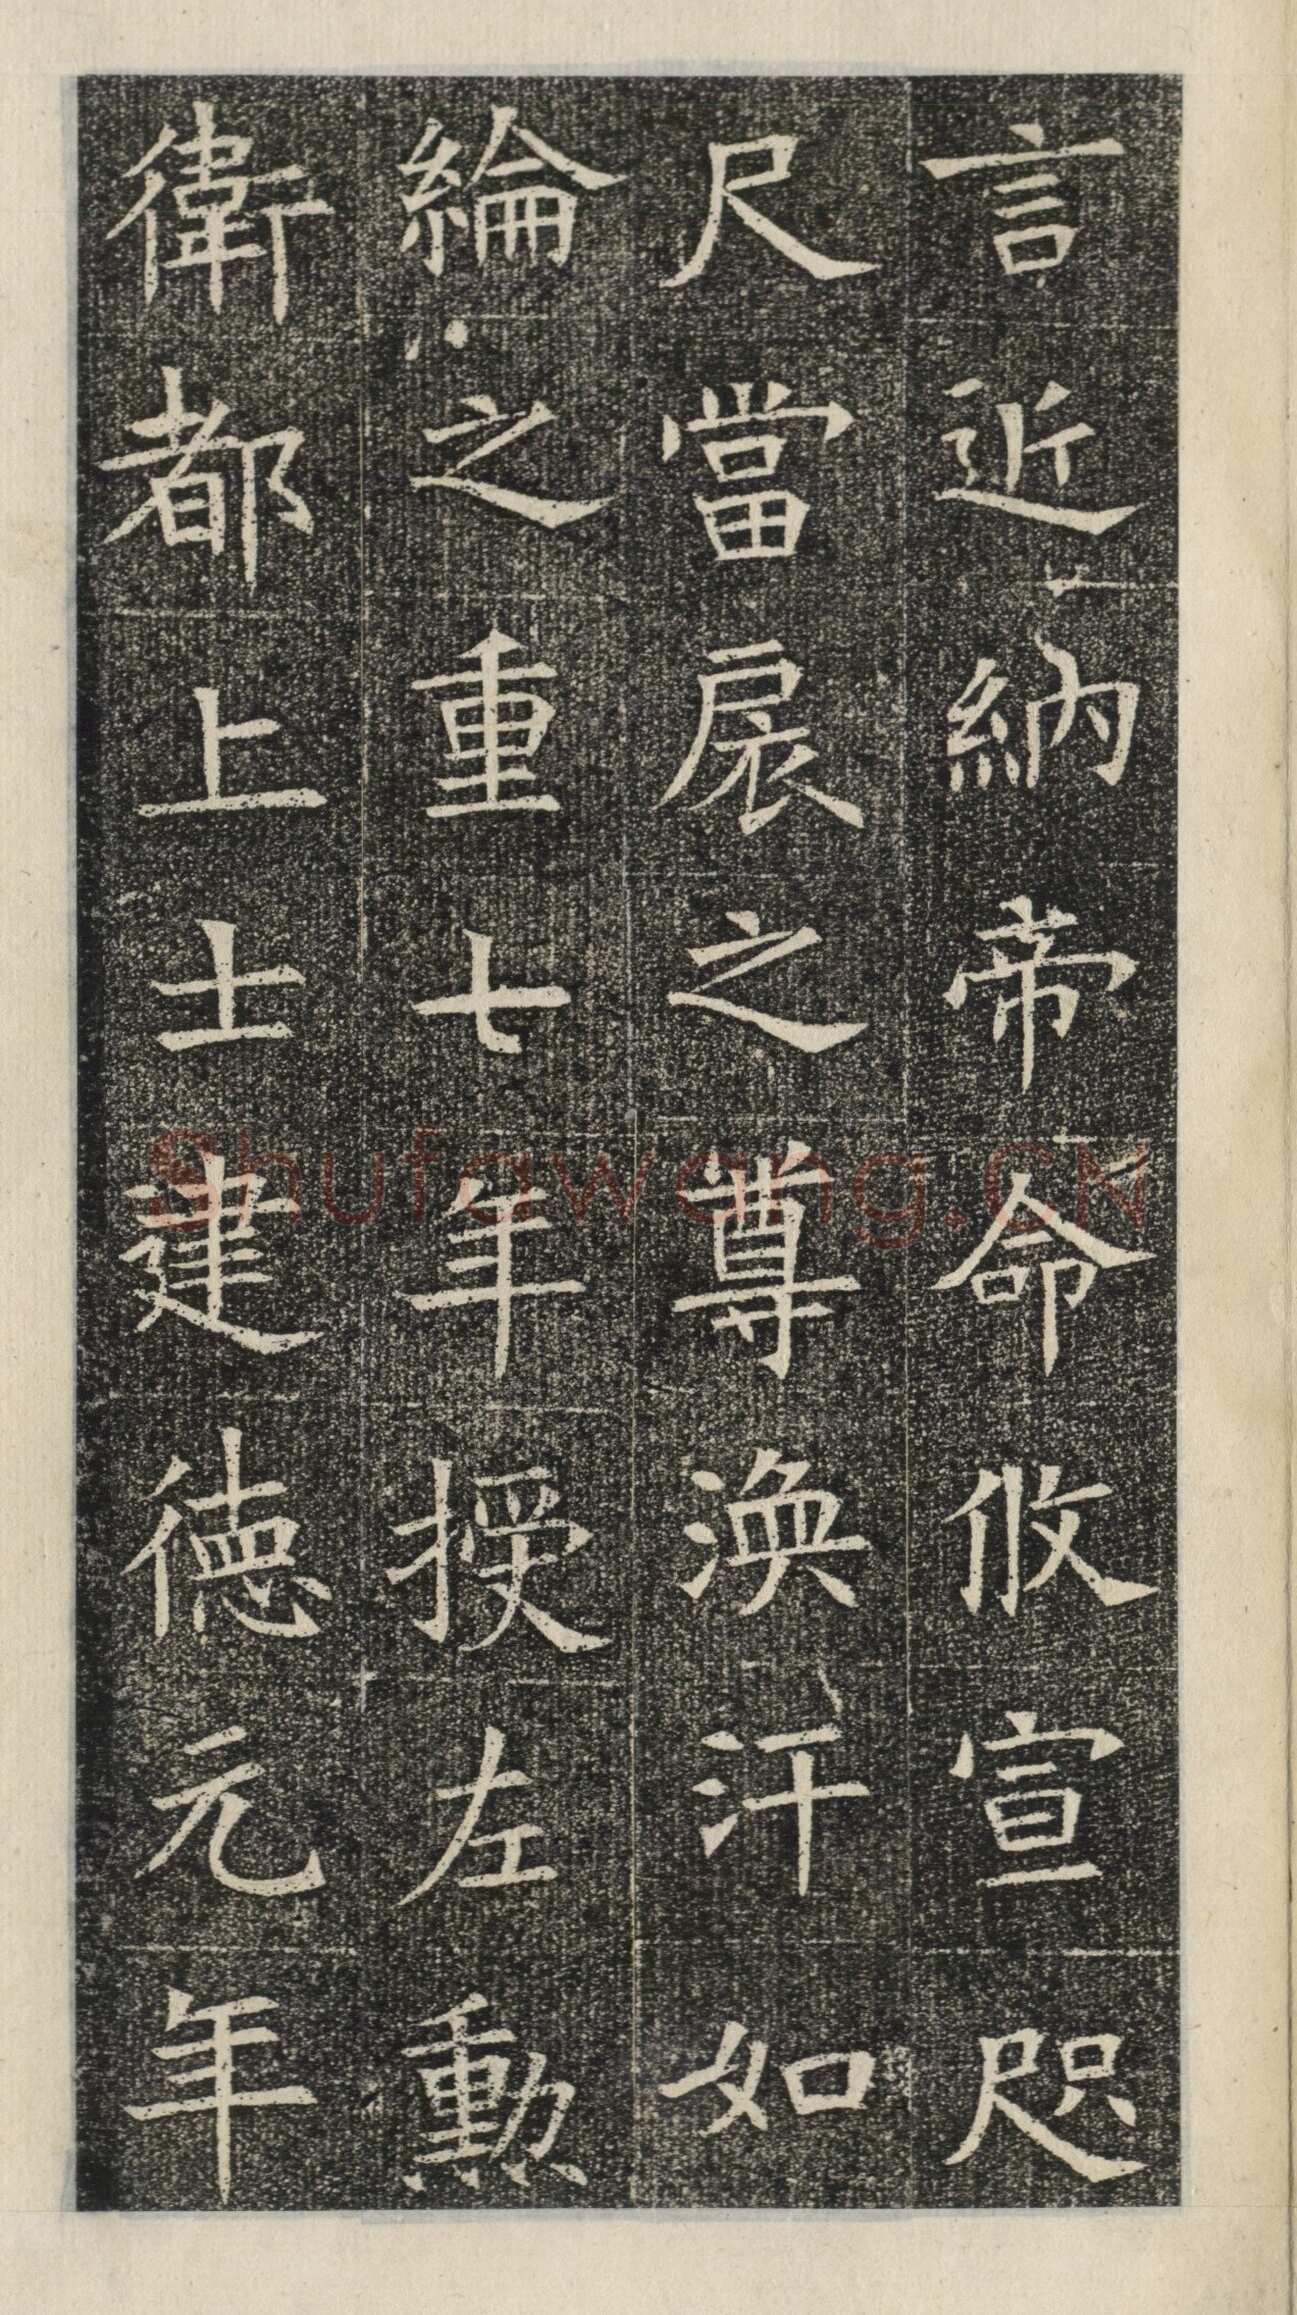 言近納帝命攸宣咫
尺當扆之尊渙汗如
綸之重七年授左勳
衛都上士建德元年
Shufawang.CN